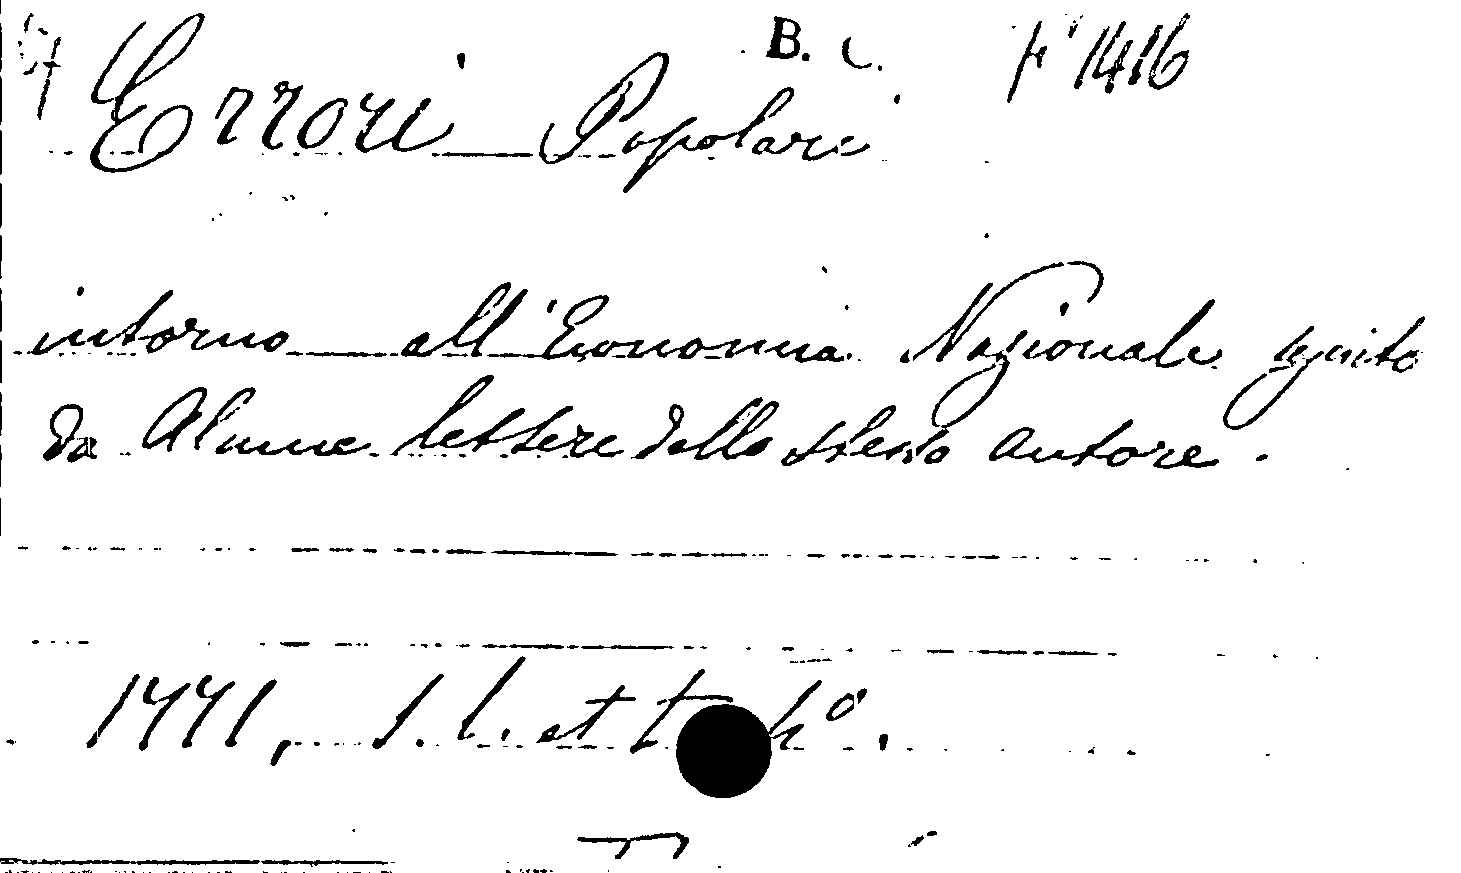 B. c. F 1416
Errori Popolari
intorno all'Economia Nazionale seguito
da Alcune lettere dello stesso autore.
1771, s. l. et t. 4°.